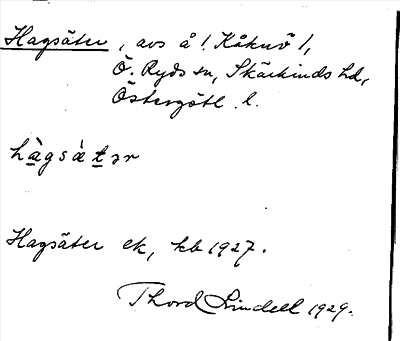 Hagsäter, avs å! Kåknö!,
Ö. Ryds sn, Skärkinds hd,
Östergötl. l.
hàgsä́tər
Hagsäter ek, kb 1927.
Thord Lindell 1929.